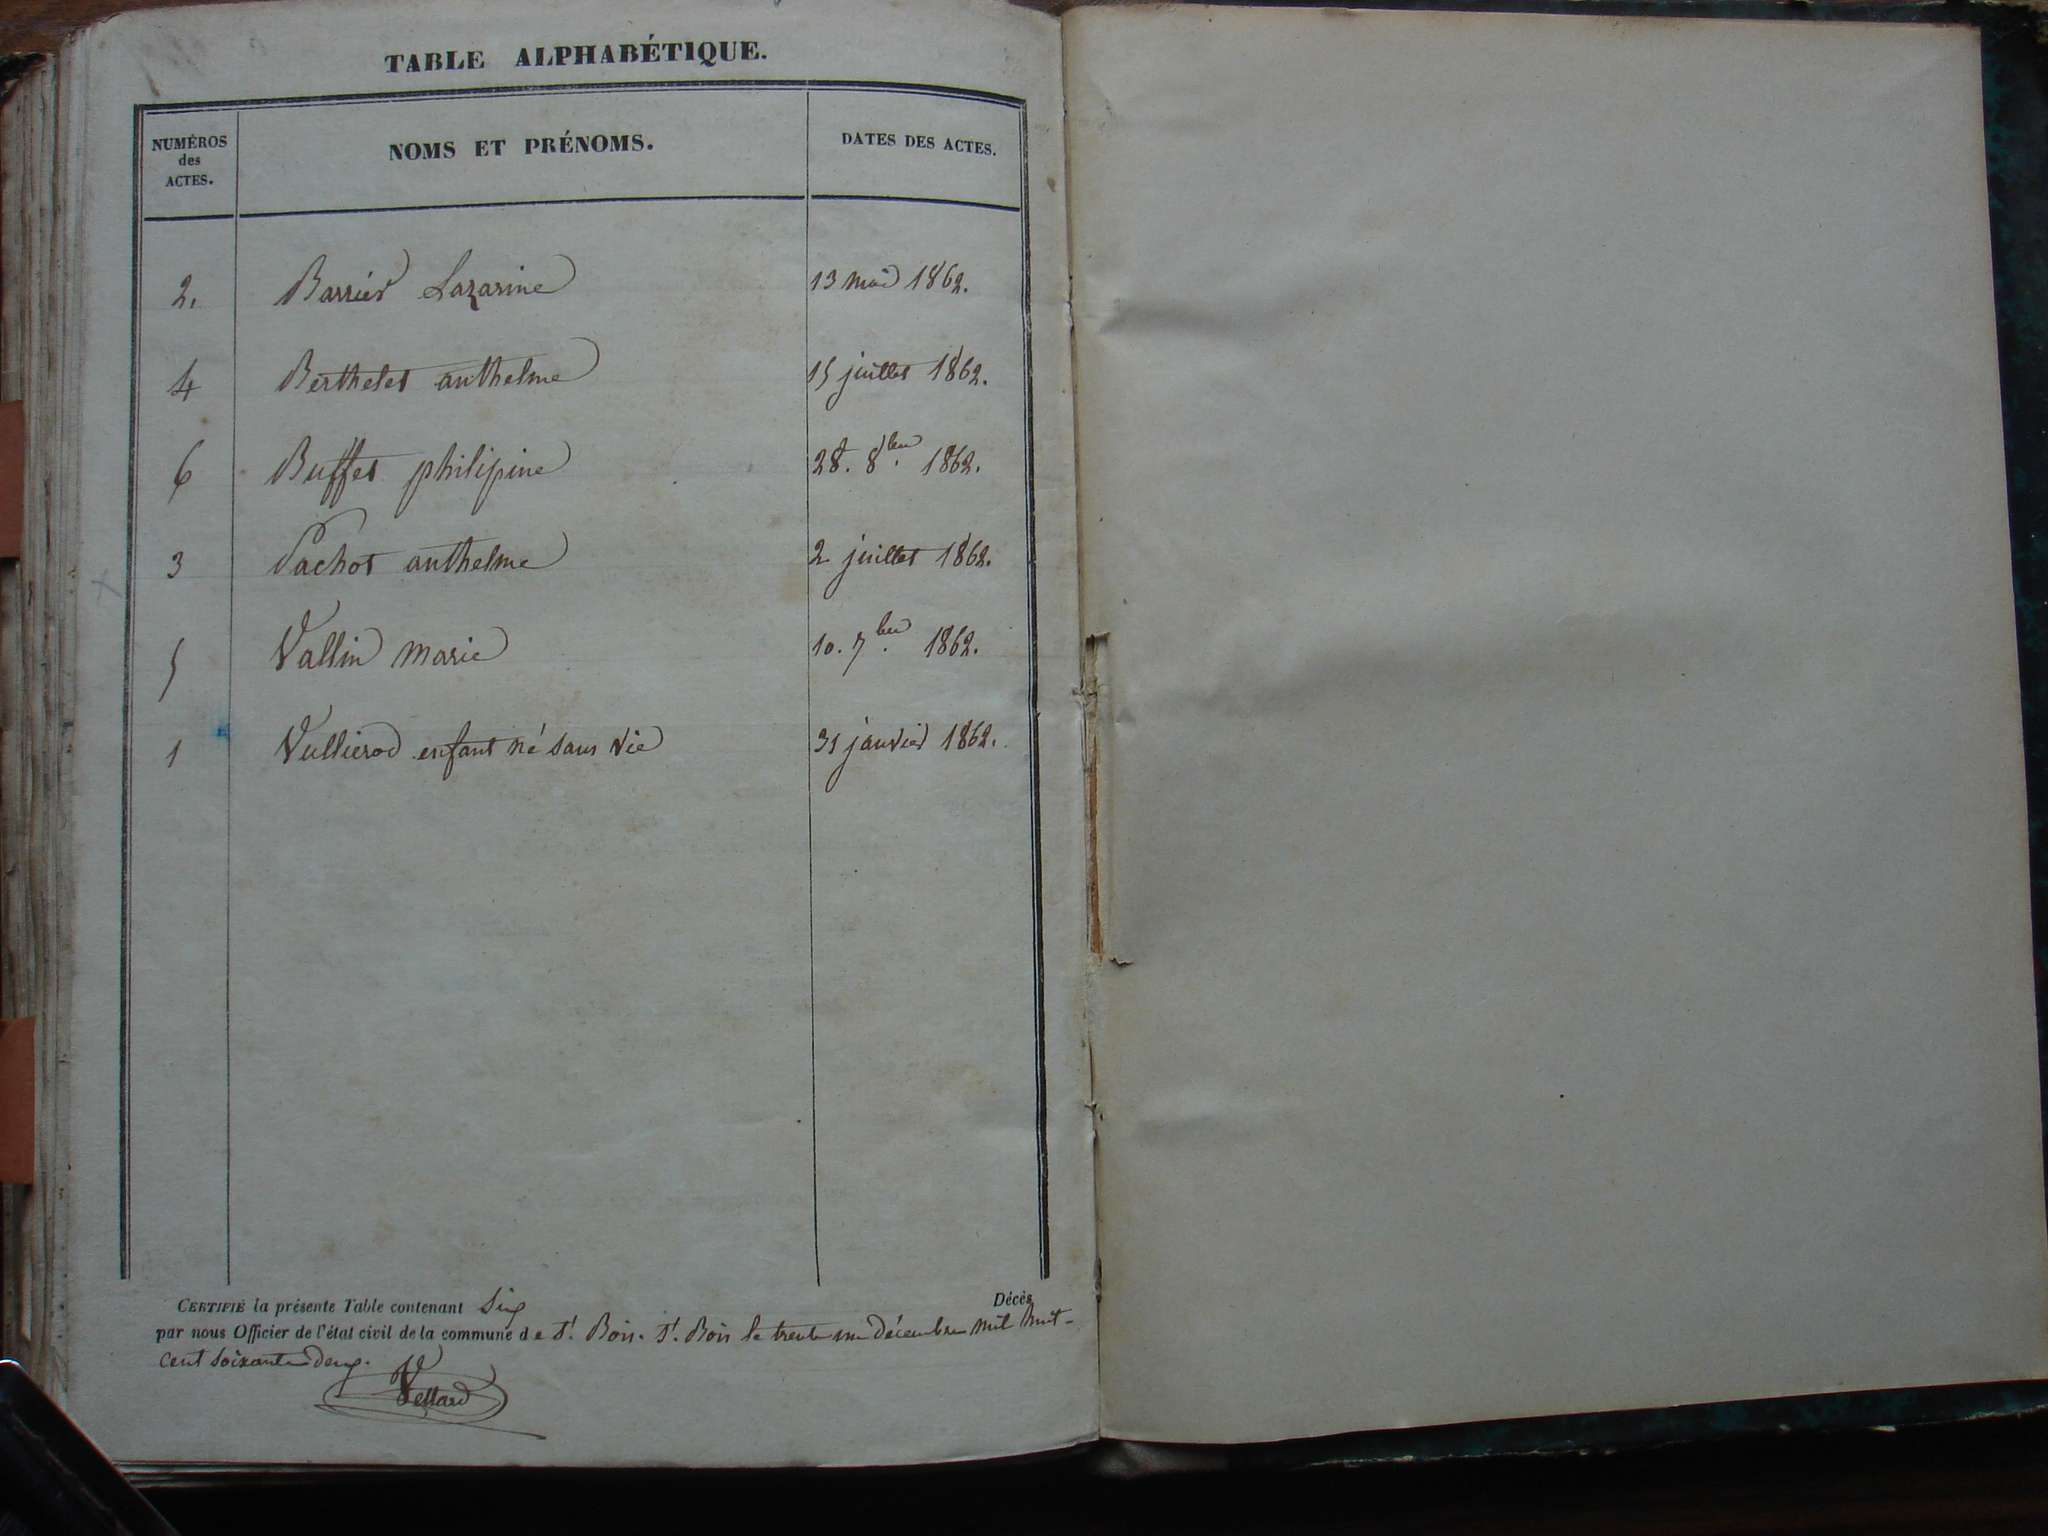 TABLE ALPHABÉTIQUE.
NUMÉROS des ACTES. NOMS ET PRÉNOMS. DATES DES ACTES.
2. Barrier Lazarine 13 mai 1862.
4 Berthelet anthelme 15 juillet 1862.
6 Buffet philipine 28. 8bre 1862.
3 Pachot anthelme 2 juillet 1862.
5 Vallin marie 10. 7bre 1862.
1 Vullierod enfant né sans vie 31 janvier 1862.
CERTIFIÉ la présente Table contenant Six Décès
par nous Officier de l'état civil de la commune de St. Bois. St. Bois le trente un décembre mil huit-
cent soixante deux.
Vettard